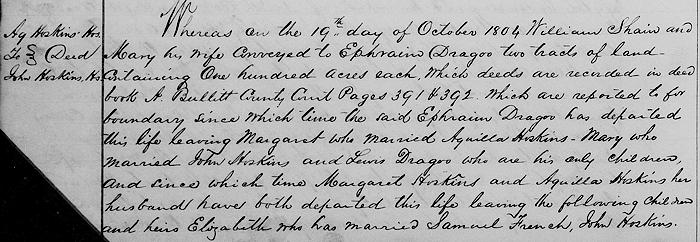 Aq Hoskins Hrs.
To } Deed
John Hoskins, Hrs
Whereas on the 19th day of October 1804 William Shain and
Mary his wife Conveyed to Ephraim Dragoo two tracts of land
Containing One hundred acres each, which deeds are recorded in deed
book A. Bullitt County Court Pages 391 & 392. which are reported to for
boundary since which time the said Ephraim Dragoo has departed
this life leaving Margaret who married Aquilla Hoskins - Mary who
married John Hoskins and Lewis Dragoo who are his only children,
and since which time Margaret Hoskins and Aquilla Hoskins her
husband have both departed this life leaving the following Children
and heirs Elizabeth who has married Samuel French, John Hoskins.